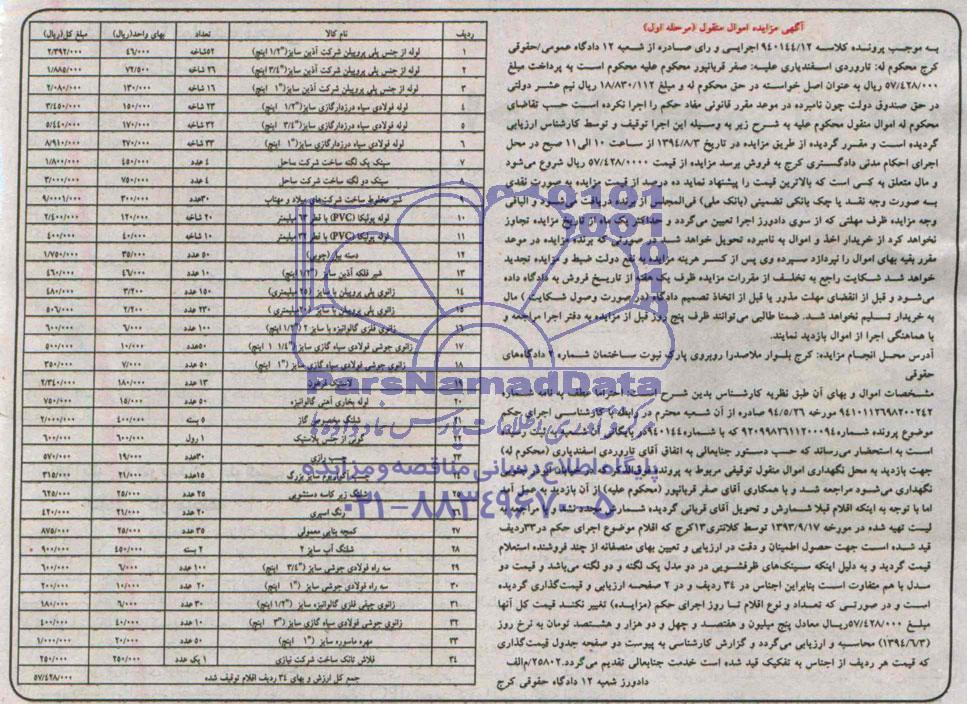 آگهی مزایده اموال منقول (مرحله اول)
به موجب پرونده کلاسه ۹۴۰۱۴۴/۱۲ اجرایی و رای صادره از شعبه ۱۲ دادگاه عمومی/حقوقی
کرج محکوم له: تاروردی اسفندیاری علیه: صفر قربانپور محکوم علیه محکوم است به پرداخت مبلغ
۵۷/۴۲۸/۰۰۰ ریال به عنوان اصل خواسته در حق محکوم له و مبلغ ۱۸/۸۳۰/۱۱۲ ریال نیم عشر دولتی
در حق صندوق دولت چون نامبرده در موعد مقرر قانونی مفاد حکم را اجرا نکرده است حسب تقاضای
محکوم له اموال منقول محکوم علیه به شرح زیر به وسیله این اجرا توقیف و توسط کارشناس ارزیابی
گردیده است و مقرر گردیده از طریق مزایده در تاریخ ۱۳۹۴/۸/۳ از ساعت ۱۰ الی۱۱ صبح در محل
اجرای احکام مدنی دادگستری کرج به فروش برسد مزایده از قیمت ۵۷/۴۲۸/۰۰۰۰ ریال شروع می‌شود
و مال متعلق به کسی است که بالاترین قیمت را پیشنهاد نماید ده درصد از قیمت مزایده به صورت نقدی
به صورت وجه نقد یا چک بانکی تضمینی (بانک ملی) فی‌المجلس از برنده دریافت می‌شود و الباقی
وجه مزایده ظرف مهلتی که از سوی دادورز اجرا تعیین می‌گردد و حداکثر یک ماه از تاریخ مزایده تجاوز
نخواهد کرد از خریدار اخذ و اموال به نامبرده تحویل خواهد شد در صورتی که برنده مزایده در موعد
مقرر بقیه بهای اموال را نپردازد سپرده وی پس از کسر هزینه مزایده به نفع دولت ضبط و مزایده تجدید
خواهد شد شکایت راجع به تخلف از مقررات مزایده ظرف یک هفته از تاریخ فروش به دادگاه داده
می‌شود و قبل از انقضای مهلت مذور یا قبل از اتخاذ تصمیم دادگاه (در صورت وصول شکایت) مال
به خریدار تسلیم نخواهد شد. ضمنا طالبی می‌توانند ظرف پنج روز قبل از مزایده به دفتر اجرا مراجعه و
با هماهنگی اجرا از اموال بازدید نمایند.
آدرس محل انجام مزایده: کرج بلوار ملاصدرا روبروی پارک نبوت ساختمان شماره ۲ دادگاه‌های
حقوقی
مشخصات اموال و بهای آن طبق نظریه کارشناس بدین شرح است: احتراما عطف به نامه شماره
۹۴۱۰۱۱۲۶۹۸۲۰۰۲۴۲ مورخه ۹۴/۵/۲۶ صادره از آن شعبه محترم در رابطه با کارشناسی اجرای حکم
موضوع پرونده شماره ۹۲۰۹۹۸۲۶۱۱۲۰۰۰۹۴ که با شماره ۹۴۰۱۴۴ در بایگانی آن شعبه به ثبت رسیده
است به استحضار می‌رساند که حسب دستور جنابعالی به اتفاق آقای تاروردی اسفندیاری (محکوم له)
جهت بازدید به محل نگهداری اموال منقول توقیفی مربوط به پرونده فوق‌الذکر که در
نگهداری می‌شود مراجعه شد و با همکاری آقای صفر قربانپور (محکوم علیه) از آن بازدید به عمل آمد
اما با توجه به اینکه اقلام قبلا شمارش و تحویل آقای قربانی گردیده شمارش مجدد نشد و با مراجعه به
لیست تهیه شده در مورخه ۱۳۹۳/۹/۱۷ توسط کلانتری۱۳کرج که اقلام موضوع اجرای حکم در۳۳ردیف
قید شده است جهت حصول اطمینان و دقت در ارزیابی و تعیین بهای منصفانه از چند فروشنده استعلام
قیمت گردید و به دلیل اینکه سینک‌های ظرفشویی در دو مدل یک لگنه و دو لگنه می‌باشد و قیمت دو
مدل با هم متفاوت است بنابراین اجناس در ۳۴ ردیف و در ۲ صفحه ارزیابی و قیمت‌گذاری گردیده
است و در صورتی که تعداد و نوع اقلام تا روز اجرای حکم (مزایده) تغییر نکند قیمت کل آنها
مبلغ ۵۷/۴۲۸/۰۰۰ریال معادل پنج میلیون و هفتصد و چهل و دو هزار و هشتصد تومان به نرخ روز
(۱۳۹۴/۶/۳) محاسبه و ارزیابی می‌گردد و گزارش کارشناسی به پیوست دو صفحه جدول قیمت‌گذاری
که قیمت هر ردیف از اجناس به تفکیک قید شده است خدمت جنابعالی تقدیم می‌گردد.۲۵۸۰۲/م/الف
دادورز شعبه ۱۲ دادگاه حقوقی کرج
ردیف نام کالا تعداد بهای واحد(ریال) مبلغ کل(ریال)
۱ لوله از جنس پلی پروپیلن شرکت آذین سایز(۱/۲" اینچ) ۵۲شاخه ۴۶/۰۰۰ ۲/۳۹۲/۰۰۰
۲ لوله از جنس پلی پروپیلن شرکت آذین سایز(۳/۴" اینچ) ۲۶ شاخه ۷۲/۵۰۰ ۱/۸۸۵/۰۰۰
۳ لوله از جنس پلی پروپیلن شرکت آذین سایز(۱" اینچ) ۱۶ شاخه ۱۳۰/۰۰۰ ۲/۰۸۰/۰۰۰
۴ لوله فولادی سیاه درزدارگازی سایز(۱/۲" اینچ) ۲۳ شاخه ۱۵۰/۰۰۰ ۳/۴۵۰/۰۰۰
۵ لوله فولادی سیاه درزدارگازی سایز(۳/۴" اینچ) ۳۲ شاخه ۱۷۰/۰۰۰ ۵/۴۴۰/۰۰۰
۶ لوله فولادی سیاه درزدارگازی سایز(۱" اینچ) ۳۳ شاخه ۲۷۰/۰۰۰ ۸/۹۱۰/۰۰۰
۷ سینک یک لگنه ساخت شرکت ساحل ۴ عدد ۴۵۰/۰۰۰ ۱/۸۰۰/۰۰۰
۸ سینک دو لگنه ساخت شرکت ساحل ۴ عدد ۷۵۰/۰۰۰ ۳/۰۰۰/۰۰۰
۹ شیر مخلوط ساخت شرکت های میلاد و مهتاب ۳۰عدد ۳۰۰/۰۰۰ ۹/۰۰۰۱/۰۰۰
۱۰ لوله پولیکا (PVC) با قطر ۶۳ میلیمتر ۲۰ شاخه ۱۲۰/۰۰۰ ۲/۴۰۰/۰۰۰
۱۱ لوله پولیکا (PVC) با قطر ۳۲ میلیمتر ۱۰ شاخه ۴۰/۰۰۰ ۴۰۰/۰۰۰
۱۲ دسته بیل (چوبی) ۵۰ عدد ۳۵/۰۰۰ ۱/۷۵۰/۰۰۰
۱۳ شیر فلکه آذین سایز (۱/۲" اینچ) ۱۰ عدد ۴۶/۰۰۰ ۴۶۰/۰۰۰
۱۴ زانوی پلی پروپیلن با سایز (۲۵ میلیمتری) ۱۵۰ عدد ۳/۲۰۰ ۴۸۰/۰۰۰
۱۵ زانوی پلی پروپیلن با سایز (۲۰میلیمتری) ۲۳۰ عدد ۲/۲۰۰ ۵۰۶/۰۰۰
۱۶ زانوی فلزی گالوانیزه با سایز (۱/۲" اینچ) ۱۰۰ عدد ۶/۰۰۰ ۶۰۰/۰۰۰
۱۷ زانوی جوشی فولادی سیاه گازی سایز (۱ ۱/۴" اینچ) ۵۰عدد ۱۰/۰۰۰ ۵۰۰/۰۰۰
۱۸ زانوی جوشی فولادی سیاه گازی سایز (۱" اینچ) ۵۰ عدد ۷/۰۰۰ ۳۵۰/۰۰۰
۱۹ لاستیک فرغون ۱۳ عدد ۱۸۰/۰۰۰ ۲/۳۴۰/۰۰۰
۲۰ لوله بخاری آهنی گالوانیزه ۵۰ عدد ۱۵/۰۰۰ ۷۵۰/۰۰۰
۲۱ شلنگ مخصوص گاز ۵ بسته ۴۰۰/۰۰۰ ۲/۰۰۰/۰۰۰
۲۲ گونی از جنس پلاستیک ۱ رول ۶۰۰/۰۰۰ ۶۰۰/۰۰۰
۲۳ چسب رازی ۳۰عدد ۱۹/۰۰۰ ۵۷۰/۰۰۰
۲۴ چسب آکواریوم سایز بزرگ ۱۵عدد ۲۱/۰۰۰ ۳۱۵/۰۰۰
۲۵ شلنگ زیر کاسه دستشویی ۲۵ عدد ۲۵/۰۰۰ ۶۲۵/۰۰۰
۲۶ رنگ اسپری ۲۰ عدد ۲۱/۰۰۰ ۴۲۰/۰۰۰
۲۷ کمچه بنایی معمولی ۳۵ عدد ۲۵/۰۰۰ ۸۷۵/۰۰۰
۲۸ شلنگ آب سایز ۲ ۲ بسته ۴۵۰/۰۰۰ ۹۰۰/۰۰۰
۲۹ سه راه فولادی جوشی سایز (۳/۴" اینچ) ۱۰۰ عدد ۶/۰۰۰ ۶۰۰/۰۰۰
۳۰ سه راه فولادی جوشی سایز (۱" اینچ) ۲۰ عدد ۱۰/۰۰۰ ۲۰۰/۰۰۰
۳۱ زانوی چپقی فلزی گالوانیزه سایز (۱/۲" اینچ) ۳۰ عدد ۶/۰۰۰ ۱۸۰/۰۰۰
۳۲ زانوی جوشی فولادی سیاه گازی سایز (۳" اینچ) ۱۰ عدد ۴۰/۰۰۰ ۴۰۰/۰۰۰
۳۳ مهره ماسوره سایز (۱" اینچ) ۵۰ عدد ۲۰/۰۰۰ ۱/۰۰۰/۰۰۰
۳۴ فلاش تانک ساخت شرکت نیازی ۱ یک عدد ۲۵۰/۰۰۰ ۲۵۰/۰۰۰
جمع کل ارزش و بهای ۳۴ ردیف اقلام توقیف شده ۵۷/۴۲۸/۰۰۰
ParsNamadData
مرکز فرآوری اطلاعات پارس نماد داده‌ها
پایگاه اطلاع رسانی مناقصه و مزایده
۰۲۱-۸۸۳۴۹۶۷۰-۵